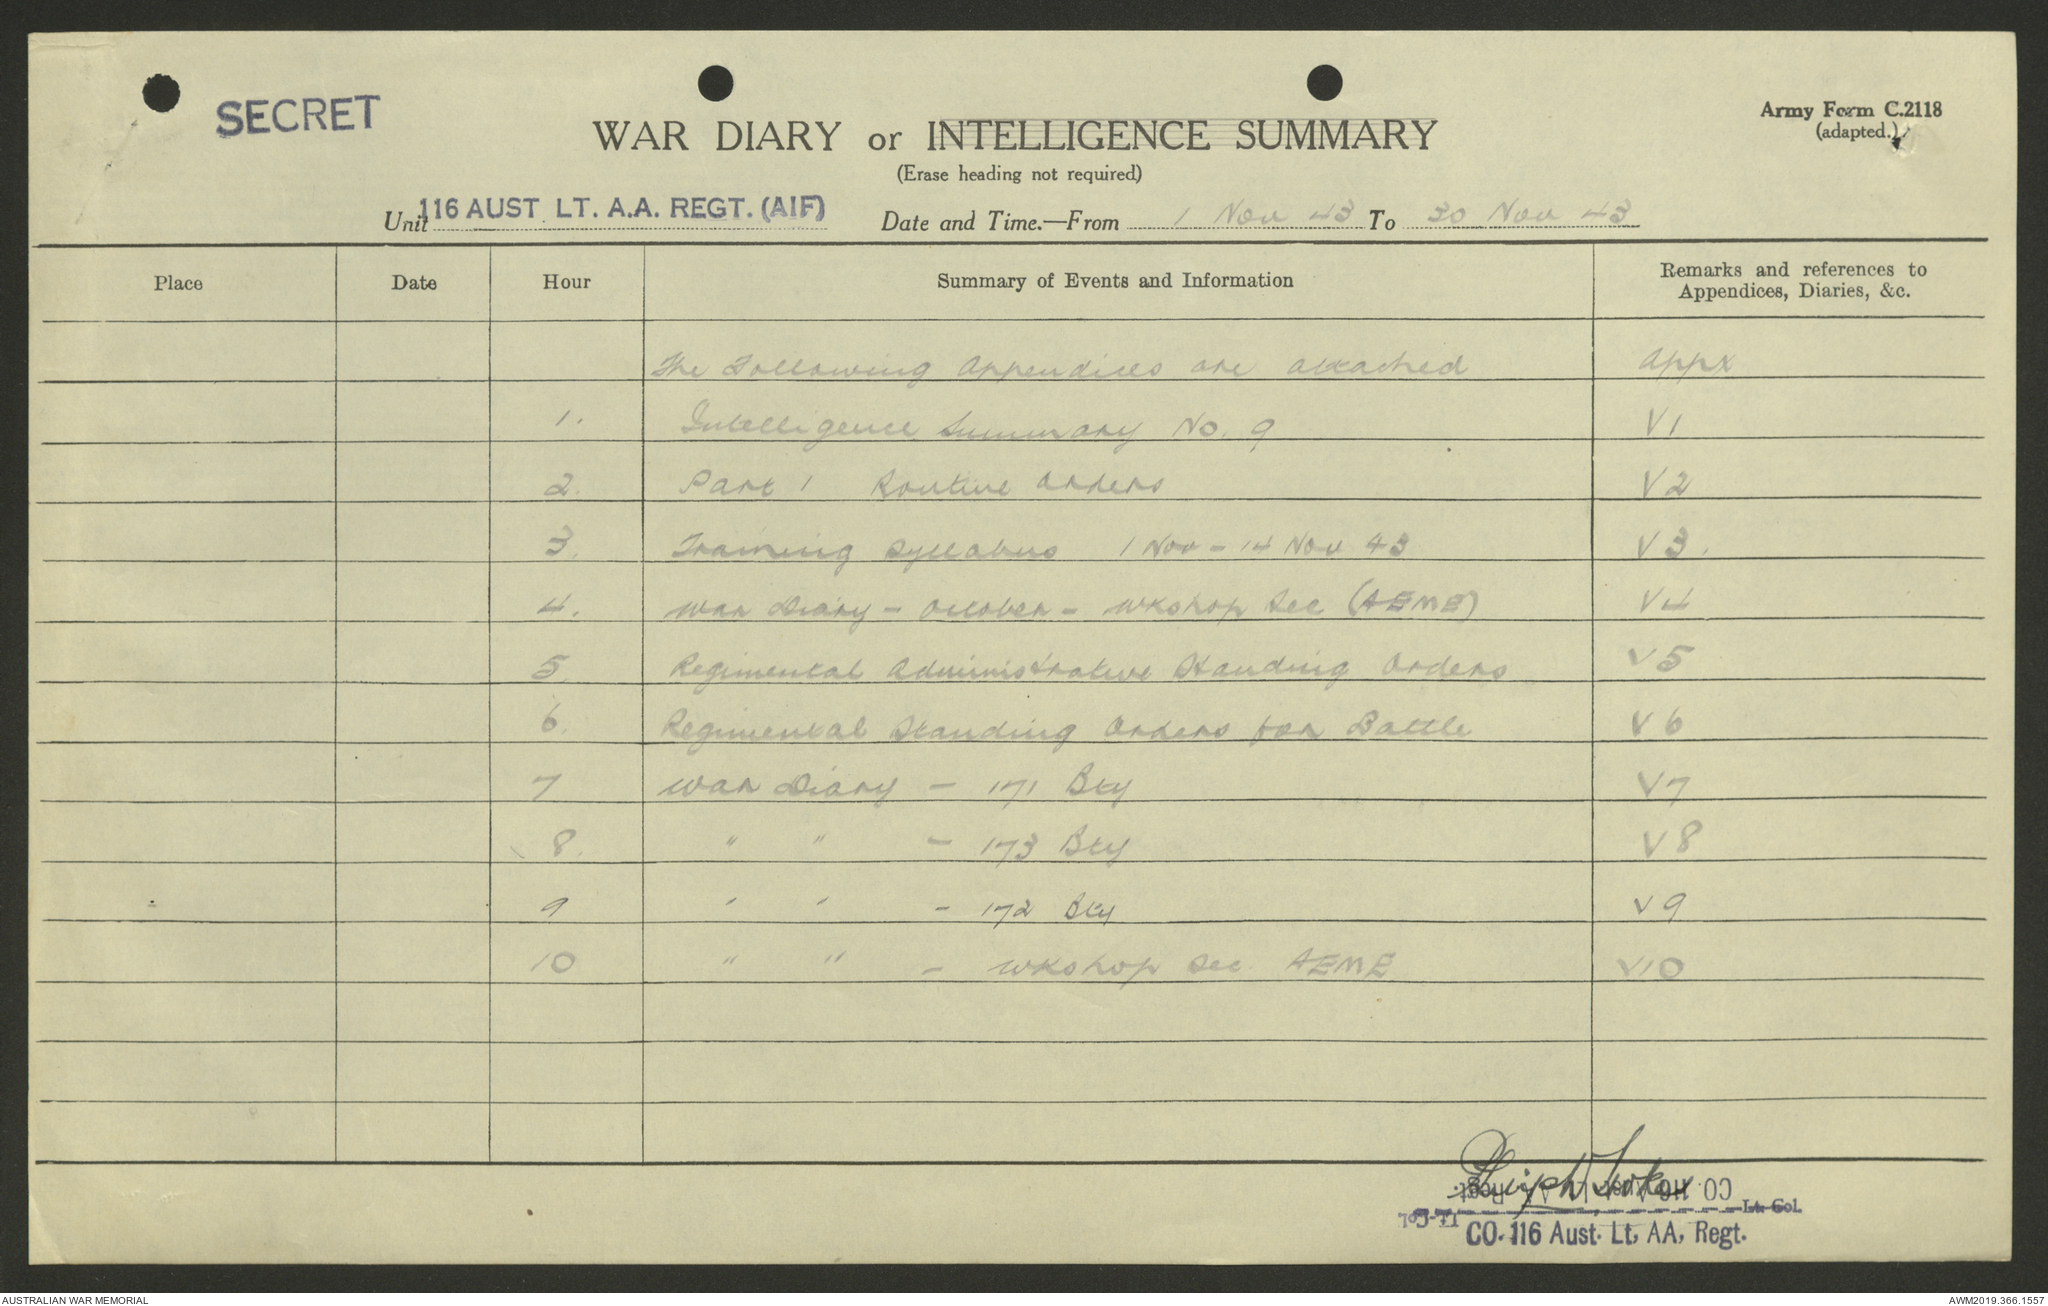 SECRET
WAR DIARY or INTELLIGENCE SUMMARY
(Erase heading not required)
Army Form C.2118
(adapted.)
Unit 116 AUST. LT. A.A. REGT. (AIF) Date and Time.—From 1 Nov 43 To 30 Nov 43
Place Date Hour Summary of Events and Information Remarks and references to
Appendices, Diaries, &c.
The Following Appendices are attached Appx
1. Intelligence Summary No. 9 V1
2. Part 1 Routine Orders V2
3. Training Syllabus 1 Nov - 14 Nov 43 V3.
4. War Diary - October - Wkshop Sec (AEME) V4
5. Regimental Administrative Standing Orders V5
6. Regimental Standing Orders for Battle V6
7 War Diary - 171 Bty V7
8. " " - 173 Bty V8
9 " " - 172 Bty V9
10 " " - Wkshop Sec. AEME V10
CO. 116 Aust. Lt. AA. Regt.
Lt-Col.
Lt-Col.
CO. 116 Aust. Lt. AA. Regt.
AUSTRALIAN WAR MEMORIAL AWM2019.366.1557